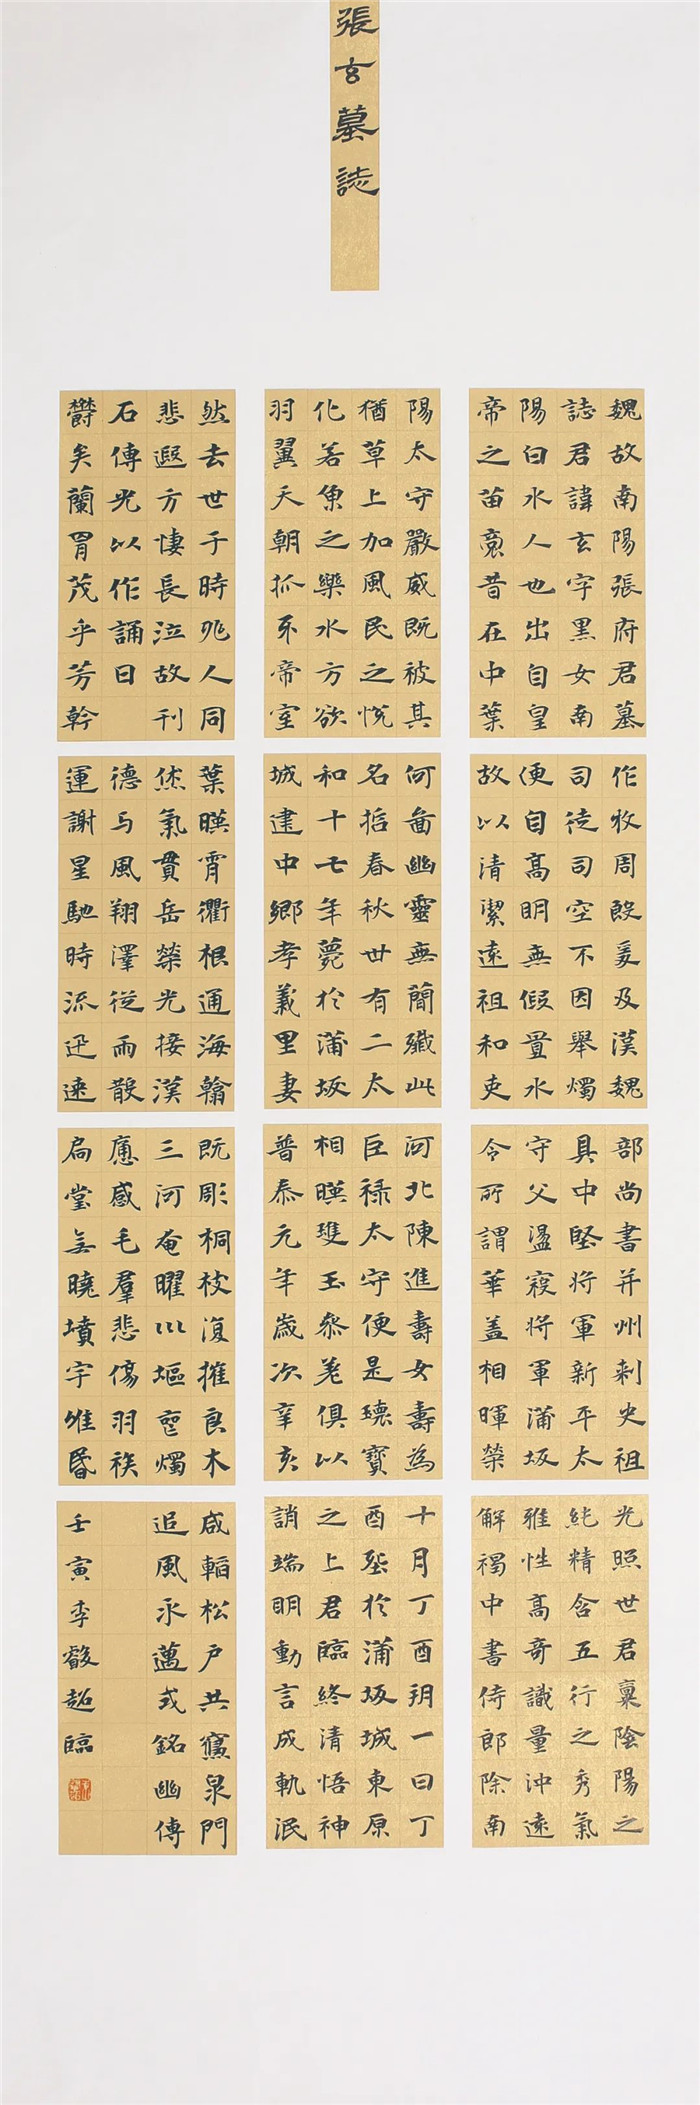 張玄墓誌
魏故南陽張府君墓
誌君諱玄字黑女南
陽白水人也出自皇
帝之苗裔昔在中葉
作牧周殷爰及漢魏
司徒司空不因舉燭
便自高明無假置水
故以清潔遠祖和吏
部尚書并州刺史祖
具中堅將軍新平太
守父盪寇將軍蒲坂
令所謂華蓋相暉榮
光照世君稟陰陽之
純精含五行之秀氣
雅性高奇識量沖遠
解褐中書侍郎除南
陽太守嚴威既被其
猶草上加風民之悅
化若魚之樂水方欲
羽翼天朝抓牙帝室
何啚幽靈無簡殲此
名哲春秋卅有二太
和十七年薨於蒲坂
城建中鄉孝義里妻
河北陳進壽女壽為
巨祿太守便是瓌寶
相暎雙玉參差俱以
普泰元年歲次辛亥
十月丁酉朔一日丁
酉葬於蒲坂城東原
之上君臨終清悟神
誚端明動言成軌泯
然去世于時兆人同
悲遐方悽長泣故刊
石傳光以作誦曰
欝矣蘭胄茂乎芳幹
葉暎霄衢根通海翰
休氣貫岳榮光接漢
德与風翔澤從雨散
運謝星馳時流迅速
既彫桐枝復摧良木
三河奄曜巛塸燭
感毛羣悲傷羽族
扃堂無曉墳宇唯昏
咸輼松戶共寢泉門
追風永邁式銘幽傳
壬寅李叡超臨